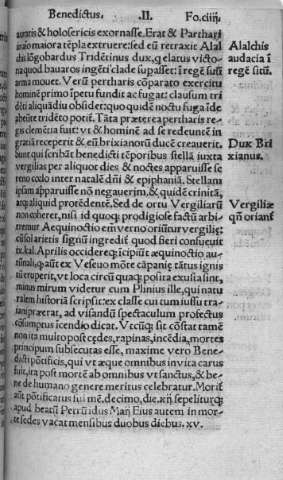 Benedictus. .II. Fo.ciiij.
auratis & holosericis exornasse. Erat & Partharj
in aĩo maiora tẽpla extruere: sed eũ retraxit Alal
chis lõgobardus Tridẽtinus dux, q̃ elatus victo-
ria quod bauaros ingẽti clade supasset: ĩ regẽ suũ
arma mouet. Verũ pertharis cõparato exercitu
hominẽ primo ĩpetu fundit ac fugat: clausum tri
dẽti aliquãdiu obsidet: quo quidẽ noctu fuga ide
abeũte tridẽto potiť. Tãta præterea pertharis re
gis clemẽtia fuit: vt & hominẽ ad se redeuntẽ in
gratiã receperit & eũ brixianorũ ducẽ creauerit.
bunt qui scribãt benedicti tẽporibus stellã juxta
vergilias per aliquot dies & noctes apparuisse se
rmo colo inter natalẽ dñi & epiphaniã. Stellam
ipsam apparuisse nõ negauerjm, & quidẽ crinitã,
atq; aliquid protẽdentẽ. Sed de ortu Vergiliarũ
non coheret, nisi id quoq; prodigiose factũ arbi-
tremur Aequinoctio em verno oriũtur vergilię:
cui⁹ oriẽtis signũ ingredit̃ quod fieri consueuit
ix.kal. Aprilis occidereq; ĩcipiũt æquinoctio au-
tũnali, q̃ aũt ex Veseuo mõte cãpanię tãtus ignis
tũ eruperit, vt loca circũ quaq; posita exusta sint,
minus mirum videtur cum Plinius ille, qui natu
ralem historiã scripsit: ex classe cui tum iussu tra-
iani præerat, ad visendũ spectaculum profectus
cõsumptus icendio dicat̃. Vtcũq; sit cõstat tamẽ
non ita multo post cędes, rapinas, incẽdia, mortes
principum subsecutas esse, maxime vero Bene
dicti põtificis, qui vt æque omnibus in vita carus
fuit, ita post mortẽ ab omnibus vt sanctus, & be-
ne de humano genere meritus celebratur. Moriť
aũt põtificatus sui mẽ. decimo, die. xij. sepelitur q;
apud beatũ Petrũ idus Maij Eius autem in mor-
te sedes vacat mensibus duobus diebus. xv.
Alalchis
audacia ĩ
regẽ sitũ.
Dux Bri
xianus.
Vergiliæ
qñ orianť